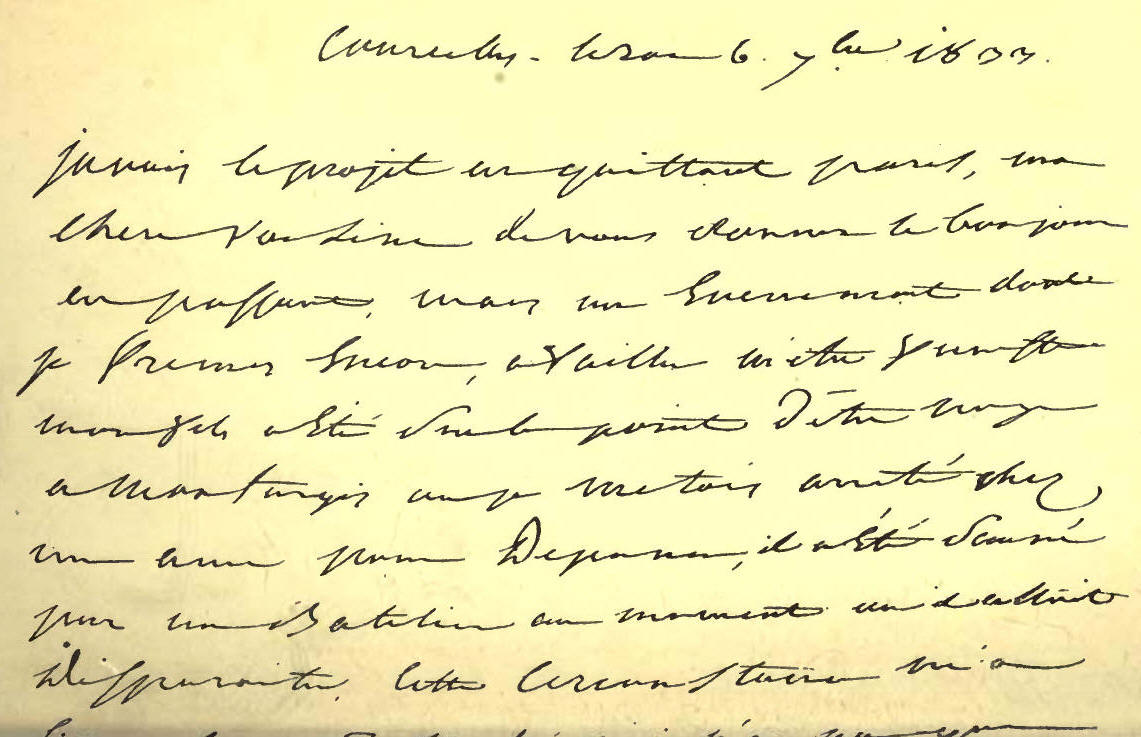 Courcelles - le Roi 6. 7bre 1833.
javais le projet en quittant paris, ma
chere          de vous donner le bonjour
en passant, mais un Evenement dont
je fremis Encore,
mon fils a Eté Sur le point d'être noyé
a Montargis ou je m'etois arrêté chez
un ami pour Dejeuner, il a Été Sauvé
par un Batelier au moment ou il alloit
Disparoitre. Cette Circonstance m'a